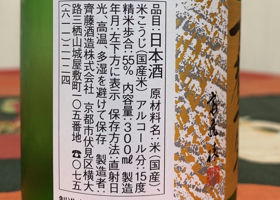 品目:日本酒 原材料名:米(国産)、
米こうじ(国産米) アルコール分:15度
精米歩合:55% 内容量:300ml 製造
年月:左下方に表示 保存方法:直射日
光、高温、多湿を避けて保存 製造者:
齊藤酒造株式会社 京都市伏見区横大
路三栖山城屋敷町一〇五番地 ☎〇七五
(六一一)二一二四